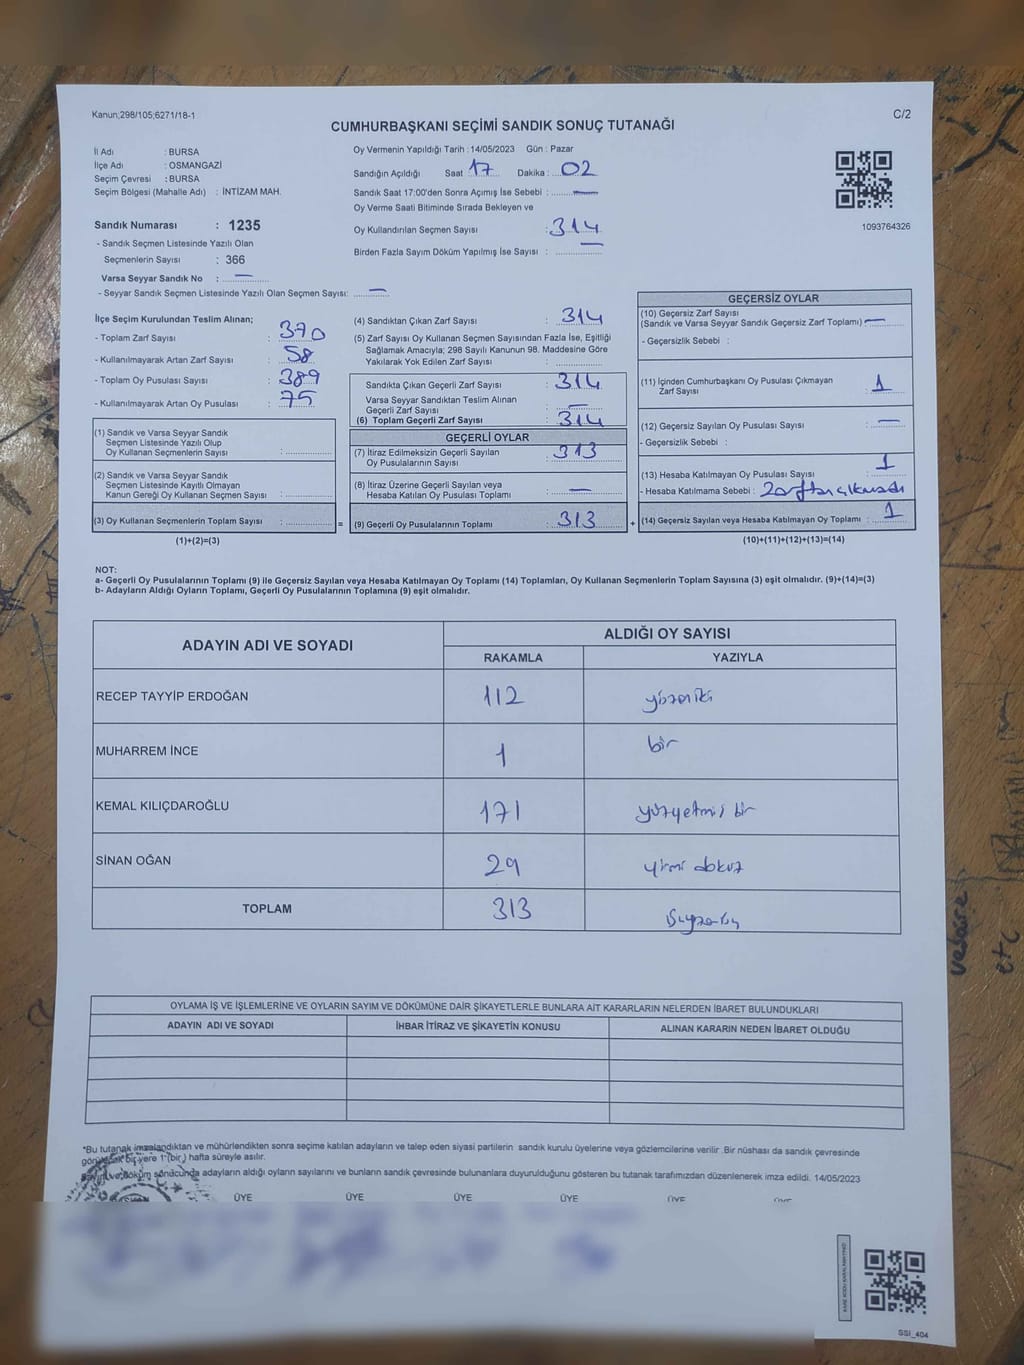 Kanun;298/105;6271/18-1
C/2
CUMHURBAŞKANI SEÇİMİ SANDIK SONUÇ TUTANAĞI
İl Adı : BURSA
İlçe Adı : OSMANGAZİ
Seçim Çevresi : BURSA
Seçim Bölgesi (Mahalle Adı) : İNTİZAM MAH.
Oy Vermenin Yapıldığı Tarih : 14/05/2023 Gün : Pazar
Sandığın Açıldığı Saat 17 Dakika : 02
Sandık Saat 17:00'den Sonra Açımış İse Sebebi : —
Oy Verme Saati Bitiminde Sırada Bekleyen ve
Oy Kullandırılan Seçmen Sayısı : 314
Birden Fazla Sayım Döküm Yapılmış İse Sayısı : —
1093764326
Sandık Numarası : 1235
- Sandık Seçmen Listesinde Yazılı Olan
Seçmenlerin Sayısı : 366
Varsa Seyyar Sandık No : —
- Seyyar Sandık Seçmen Listesinde Yazılı Olan Seçmen Sayısı: —
İlçe Seçim Kurulundan Teslim Alınan;
- Toplam Zarf Sayısı : 370
- Kullanılmayarak Artan Zarf Sayısı : 58
- Toplam Oy Pusulası Sayısı : 389
- Kullanılmayarak Artan Oy Pusulası : 75
(1) Sandık ve Varsa Seyyar Sandık
Seçmen Listesinde Yazılı Olup
Oy Kullanan Seçmenlerin Sayısı :
(2) Sandık ve Varsa Seyyar Sandık
Seçmen Listesinde Kayıtlı Olmayan
Kanun Gereği Oy Kullanan Seçmen Sayısı :
(3) Oy Kullanan Seçmenlerin Toplam Sayısı : =
(1)+(2)=(3)
(4) Sandıktan Çıkan Zarf Sayısı : 314
(5) Zarf Sayısı Oy Kullanan Seçmen Sayısından Fazla İse, Eşitliği
Sağlamak Amacıyla; 298 Sayılı Kanunun 98. Maddesine Göre
Yakılarak Yok Edilen Zarf Sayısı :
Sandıkta Çıkan Geçerli Zarf Sayısı : 314
Varsa Seyyar Sandıktan Teslim Alınan
Geçerli Zarf Sayısı : —
(6) Toplam Geçerli Zarf Sayısı : 314
GEÇERLİ OYLAR
(7) İtiraz Edilmeksizin Geçerli Sayılan
Oy Pusulalarının Sayısı : 313
(8) İtiraz Üzerine Geçerli Sayılan veya
Hesaba Katılan Oy Pusulası Toplamı : —
(9) Geçerli Oy Pusulalarının Toplamı : 313 +
GEÇERSİZ OYLAR
(10) Geçersiz Zarf Sayısı
(Sandık ve Varsa Seyyar Sandık Geçersiz Zarf Toplamı) —
- Geçersizlik Sebebi :
(11) İçinden Cumhurbaşkanı Oy Pusulası Çıkmayan
Zarf Sayısı : 1
(12) Geçersiz Sayılan Oy Pusulası Sayısı : —
- Geçersizlik Sebebi :
(13) Hesaba Katılmayan Oy Pusulası Sayısı : 1
- Hesaba Katılmama Sebebi : Zarftan çıkmadı
(14) Geçersiz Sayılan veya Hesaba Katılmayan Oy Toplamı : 1
(10)+(11)+(12)+(13)=(14)
NOT:
a- Geçerli Oy Pusulalarının Toplamı (9) ile Geçersiz Sayılan veya Hesaba Katılmayan Oy Toplamı (14) Toplamları, Oy Kullanan Seçmenlerin Toplam Sayısına (3) eşit olmalıdır. (9)+(14)=(3)
b- Adayların Aldığı Oyların Toplamı, Geçerli Oy Pusulalarının Toplamına (9) eşit olmalıdır.
ADAYIN ADI VE SOYADI
ALDIĞI OY SAYISI
RAKAMLA YAZIYLA
RECEP TAYYİP ERDOĞAN 112 yüzoniki
MUHARREM İNCE 1 bir
KEMAL KILIÇDAROĞLU 171 yüzyetmiş bir
SİNAN OĞAN 29 yirmi dokuz
TOPLAM 313
OYLAMA İŞ VE İŞLEMLERİNE VE OYLARIN SAYIM VE DÖKÜMÜNE DAİR ŞİKAYETLERLE BUNLARA AİT KARARLARIN NELERDEN İBARET BULUNDUKLARI
ADAYIN ADI VE SOYADI İHBAR İTİRAZ VE ŞİKAYETİN KONUSU ALINAN KARARIN NEDEN İBARET OLDUĞU
*Bu tutanak imzalandıktan ve mühürlendikten sonra seçime katılan adayların ve talep eden siyasi partilerin sandık kurulu üyelerine veya gözlemcilerine verilir .Bir nüshası da sandık çevresinde
bir yere 1 (bir) hafta süreyle asılır.
sonucunda adayların aldığı oyların sayılarını ve bunların sandık çevresinde bulunanlara duyurulduğunu gösteren bu tutanak tarafımızdan düzenlenerek imza edildi. 14/05/2023
ÜYE ÜYE ÜYE ÜYE ÜYE
SSI_404